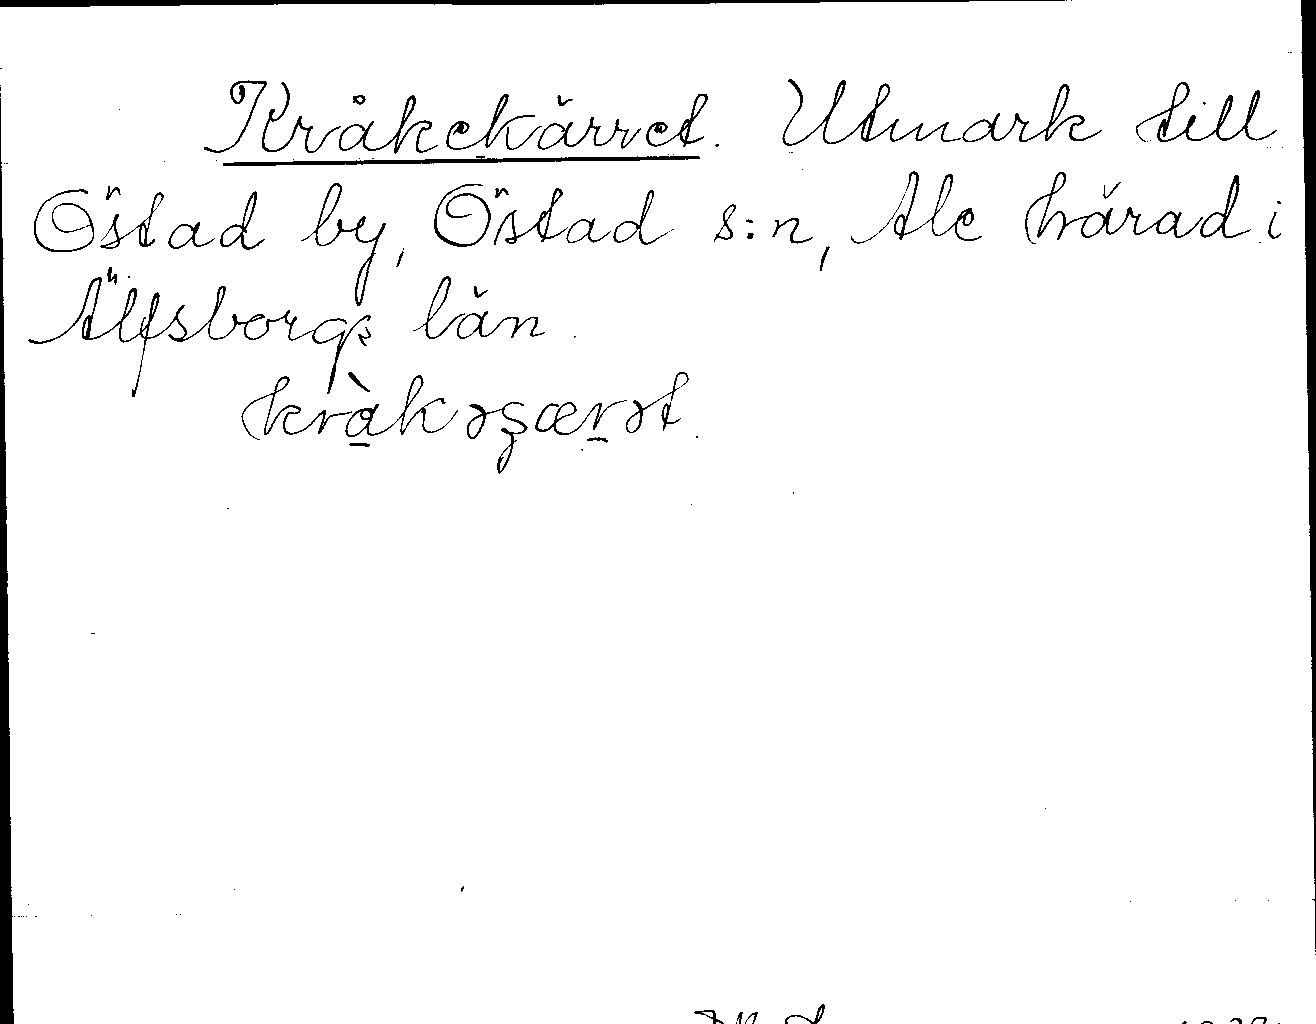 Kråkekärret. Utmark till
Östad by, Östad s:n, Ale härad i
Älfsborgs län.
kràkəʂærət.